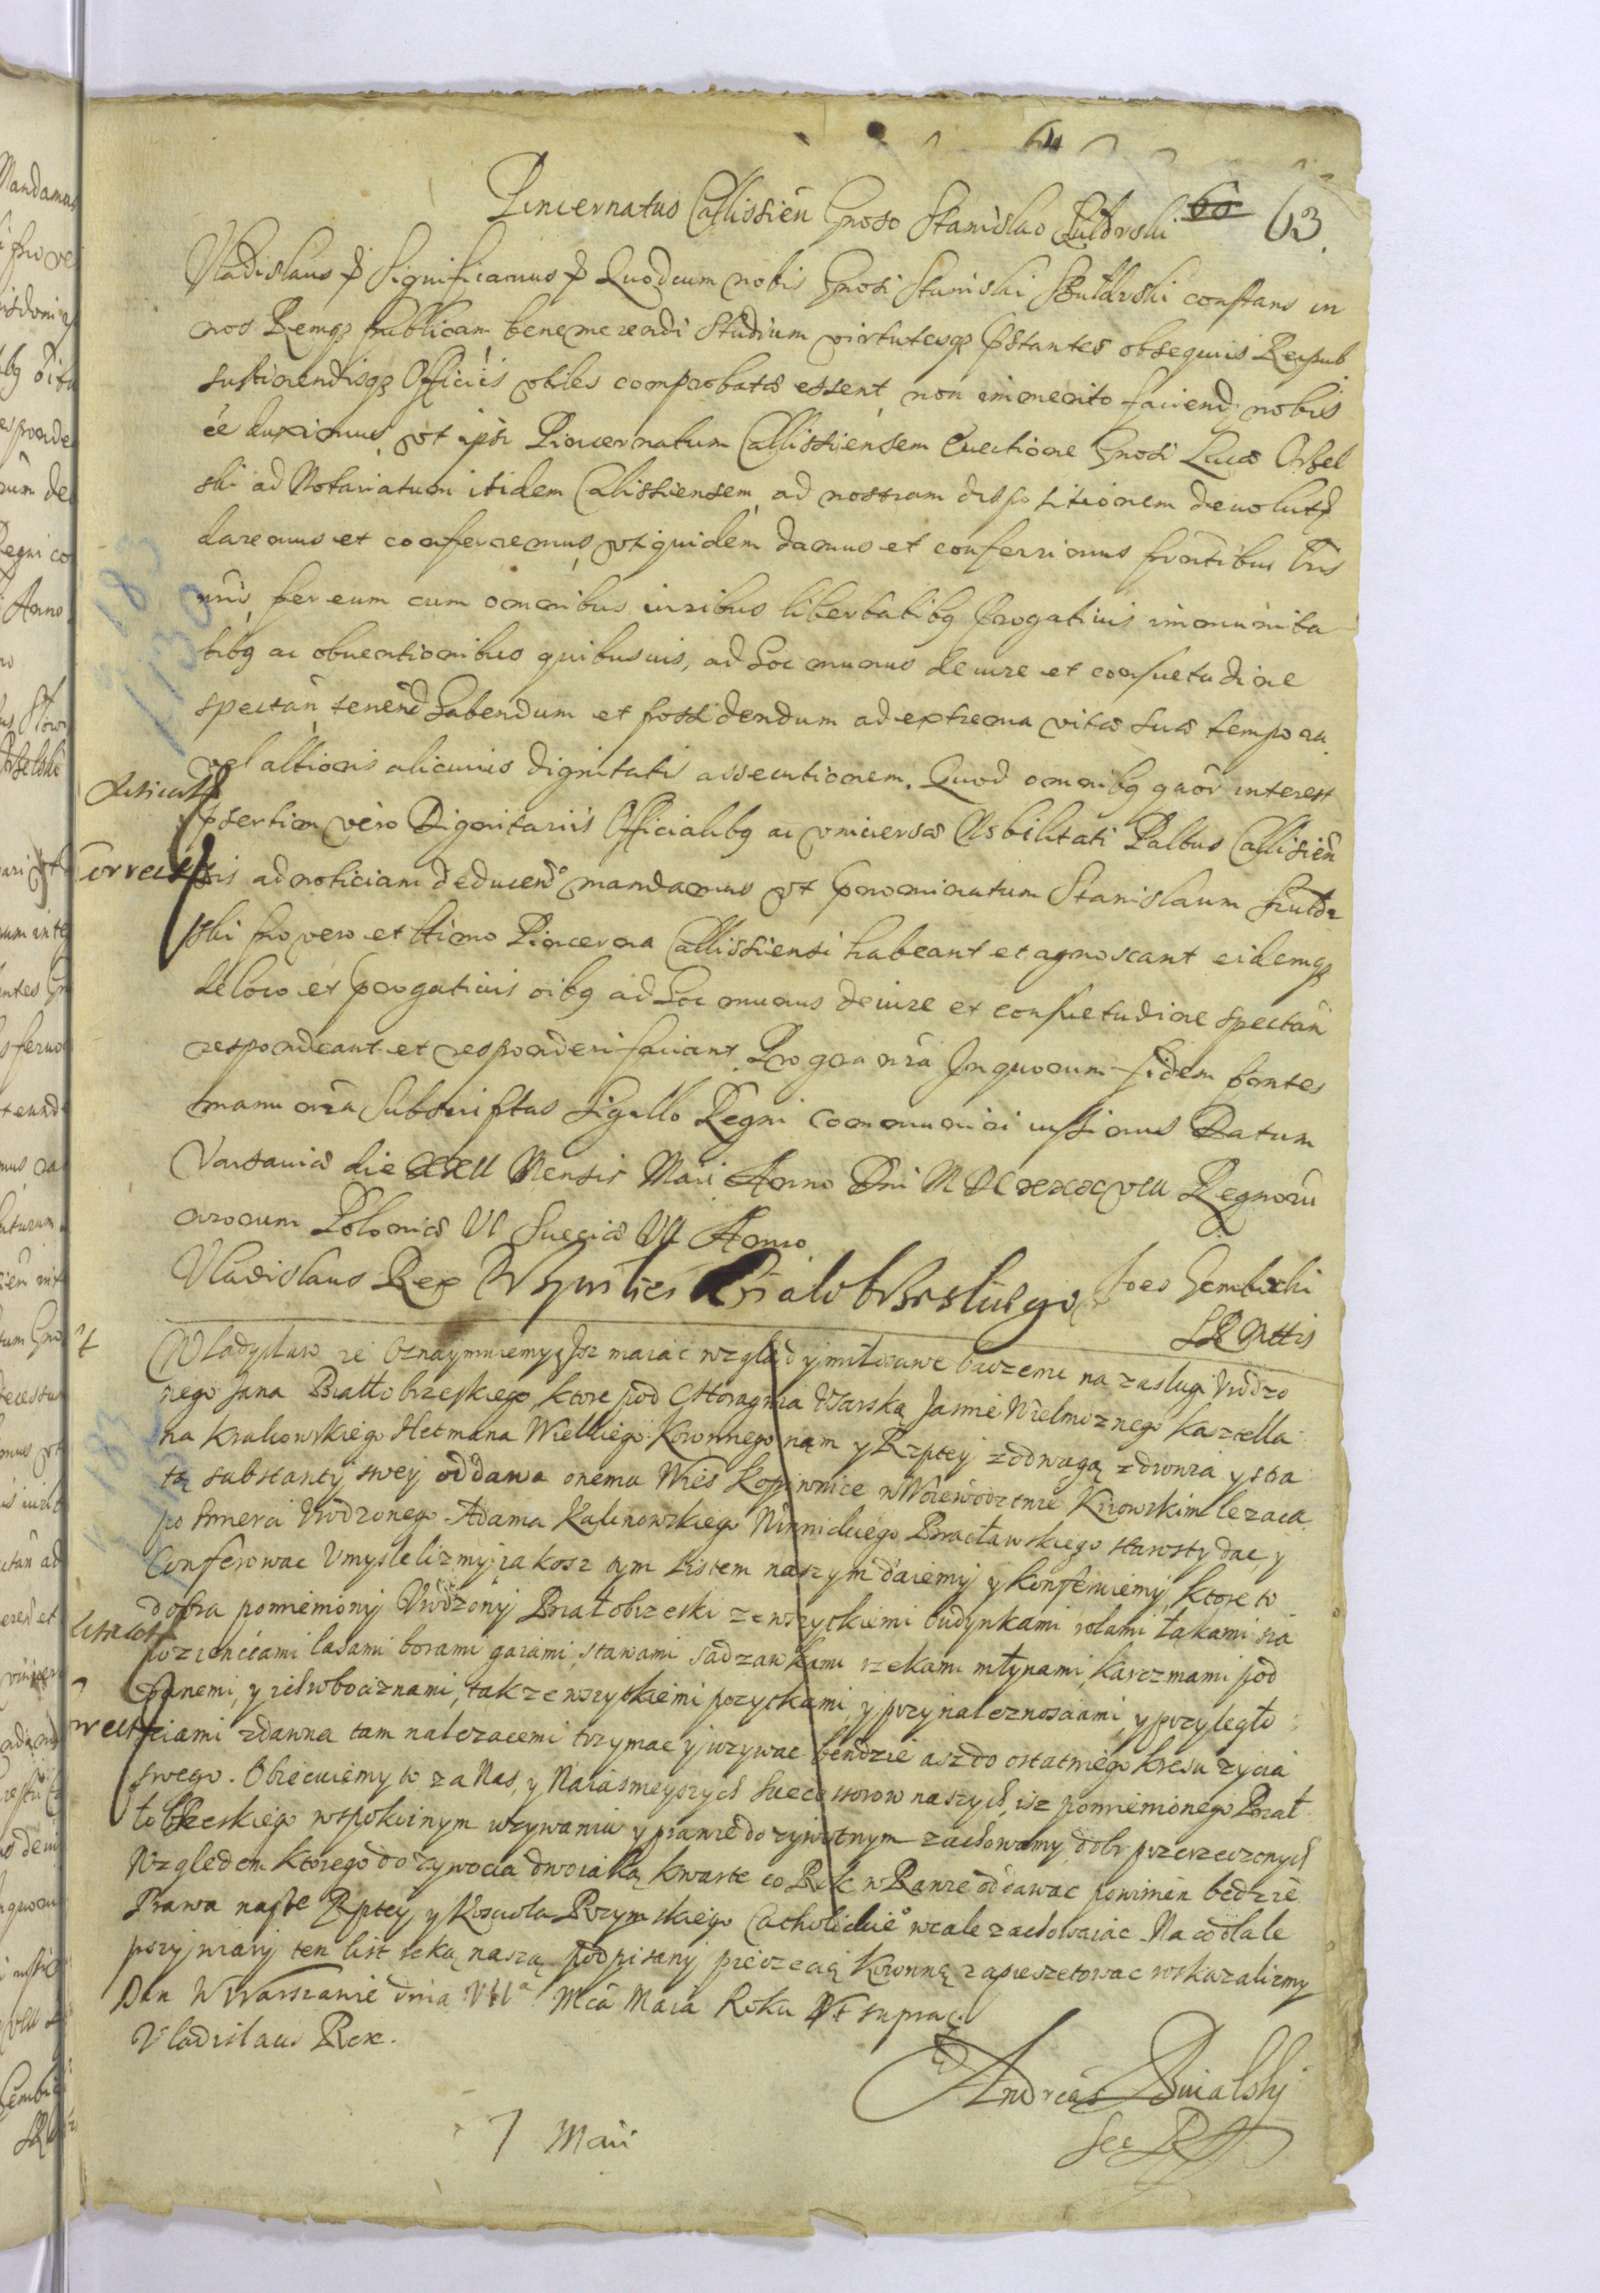 64
Pincernatus Callissieñ Gnoso Stanislao 60 63
Vladislaus Significamus Quod cum nobis Gnosi constans in
nos Remq3 publicam benemerendi studium virtutesq3 pstantes obsequiis Reipub
sustinendisq3 Officiis vtiles comprobatæ essent, non immerito faciend nobis
ēē duximus, vt ipsi Pincernatum Callissiensem Euectione Gnosi Lucæ Orzel
ski ad Notariatum itidem Calissiensem, ad nostram dispositionem deuolut
daremus et conferremus, vt quidem damus et conferrimus pntibus Lris
nris per eum cum omnibus iuribus libertatibq progatiuis immunita
tibq ac obuentionibus quibusuis, ad hoc munus de iure et consuetudine
spectañ, tenend habendum et possidendum ad extrema vitæ suæ tempora
vel altioris alicuius dignitatis assecutionem. Quod omnibq quor interest
psertim vero Dignitariis Officialibq ac vniuersæ Nobilitati Palbus Callisień
sis ad noticiam deducendo mandamus vt pnominatum Stanislaum
ski pro vero et ltimo Pincerna Callissiensi habeant et agnoscant eidemq3
de loco et progatiuis oibq ad hoc munus de iure et consuetudine spectañ
respondeant et responderi faciant. Pro gra nra In quorum fidem pntes
manu nra subscriptas Sigillo Regni communiri iussimus Datum
Varsauiæ die Mensis Maii Anno Dni Regnorū
nrorum Poloniæ VI Sueciæ VII Anno
Vladislaus Rex Joes Gembicki
Wladysław Oznaymuiemy Isz maiąc wzgląd y miłosciwe baczenie na zasługi Vrodzo
nego Jana Białłobrzeskiego, ktore pod Choragwia Vsarską Jasnie Wielmoznego Kasztella
na Krakowskiego Hetmana Wielkiego Koronnego nąm y Rzptey z odwagą zdrowia y stra
tą substantÿ swey oddawa onemu Wies Kopiiwnice w Woiewodztwie Kiiowskim lezaca
po smierci Vrodzonego Adama Kalinowskiego Winnickiego Bracławskiego starosty dac y
Conferowac Vmyslelizmy iakosz tym Listem naszym daiemy y konferuiemy, ktore to
dobra pomieniony Vrodzony Białobrzeski ze wszytkiemi budynkami rolami łakami sia
nozenciami lasami borami gaiami, stawami sadzawkami rzekami młynami, karczmami pod
danemi, y ich robociznami, takze wszytkiemi pozytkami, y przynaleznosciami, y przyległo
sciami zdawna tam nalezacemi trzymac y uzywac bendzie asz do ostatniego kresu zycia
swego. Obiecuiemy to za Nas, y Naiasnieyszych Succeessorow naszych, isz pomienionego Białł
łobrzeskiego w spokoinym uzywaniu y prawie dozywotnym zachowamy dobr przerzeczonych
Wzgledem ktorego dozywocia dwoiaką kwarte co Rok w Rawie oddawac powinien będzie
Prawa nasze Rptey y Koscioła Rzymskiego Catholickie° wcale zachowaiąc. Na co dla le
pszyj wiary ten list reką naszą podpisany pieczecią Koronną zapieczetowac rozkazalizmy
Dan W Warszawie dnia VIIª Mca Maia Roku Vt supra.
Vladislaus Rex.
Andreas
Sec
7 Maii